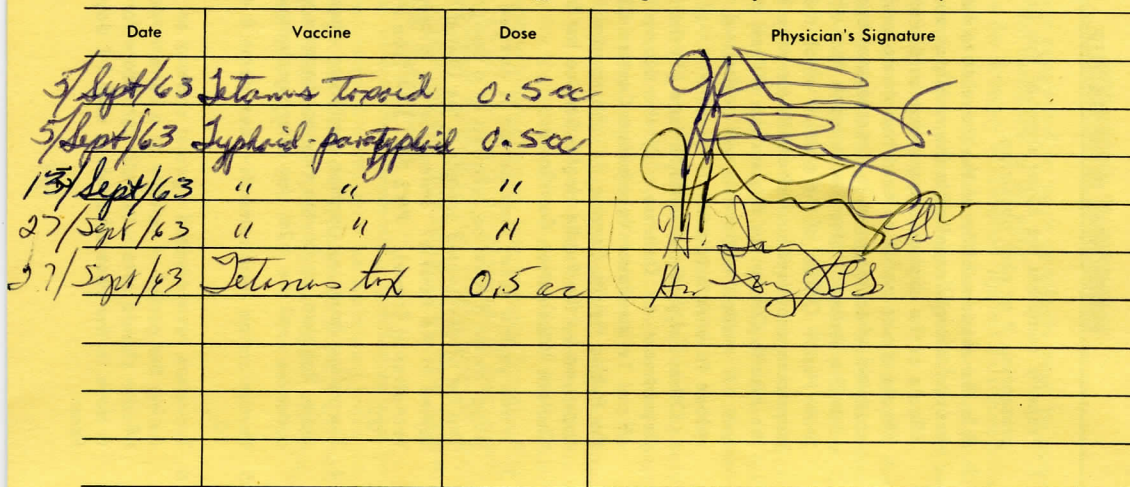 Date Vaccine Dose Physician's Signature
5/Sept/63 Tetanus toxoid 0.5 cc
5/Sept/63 Typhoid-paratyphoid 0.5 cc
13/Sept/63 " " "
27/Sept/63 " " "
27/Sept/63 Tetanus tox 0.5 cc